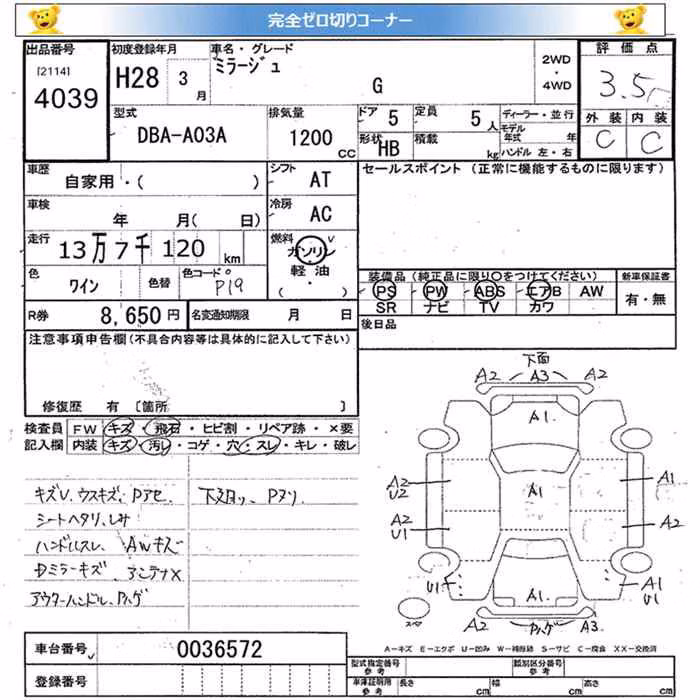 完全ゼロ切りコーナー
出品番号 初度登録年月 車名・グレード 評価点
[2114] 4039 H28 3月 ミラージュ G 2WD・4WD 3.5
外装 内装
C C
型式 DBA-A03A 排気量 1200 CC
ドア 5 定員 5人 ディーラー・並行
形状 HB 積載 kg モデル年式 年
ハンドル 左・右
車歴 自家用・( ) シフト AT
セールスポイント (正常に機能するものに限ります)
車検 年 月(日) 冷房 AC
走行 13万7千120 km 燃料 ガソリン・軽油・( )
色 ワイン 色替 色コード P19
装備品(純正品に限り○をつけてください) 新車保証書
PS PW ABS エアB AW 有・無
SR ナビ TV カワ
R券 8,650円 名変通知期限 月 日
後日品
注意事項申告欄(不具合内容等は具体的に記入して下さい)
修復歴 有 [箇所 ]
検査員 FW キズ・飛石・ヒビ割・リペア跡・×要
記入欄 内装 キズ・汚レ・コゲ・穴・スレ・キレ・破レ
キズU、ウスキズ、Pアセ、
シートヘタリ、しみ
ハンドルスレ、AWキズ
Dミラーキズ、アンテナX
アウターハンドル、Pハゲ
下廻り、Pヌリ
下面
A2 A3 A2
A1.
A2 U2 A1 A1
A2 U1 A2
U1 A1 U1
A1.
スペア A2 Pハゲ A3
A-キズ E-エクボ U-凹み W-補修跡 S-サビ C-腐食 XX-交換済
車台番号 0036572
登録番号
型式指定番号 参考 類別区分番号 参考
車庫証明用 参考 長さ cm 幅 cm 高さ cm